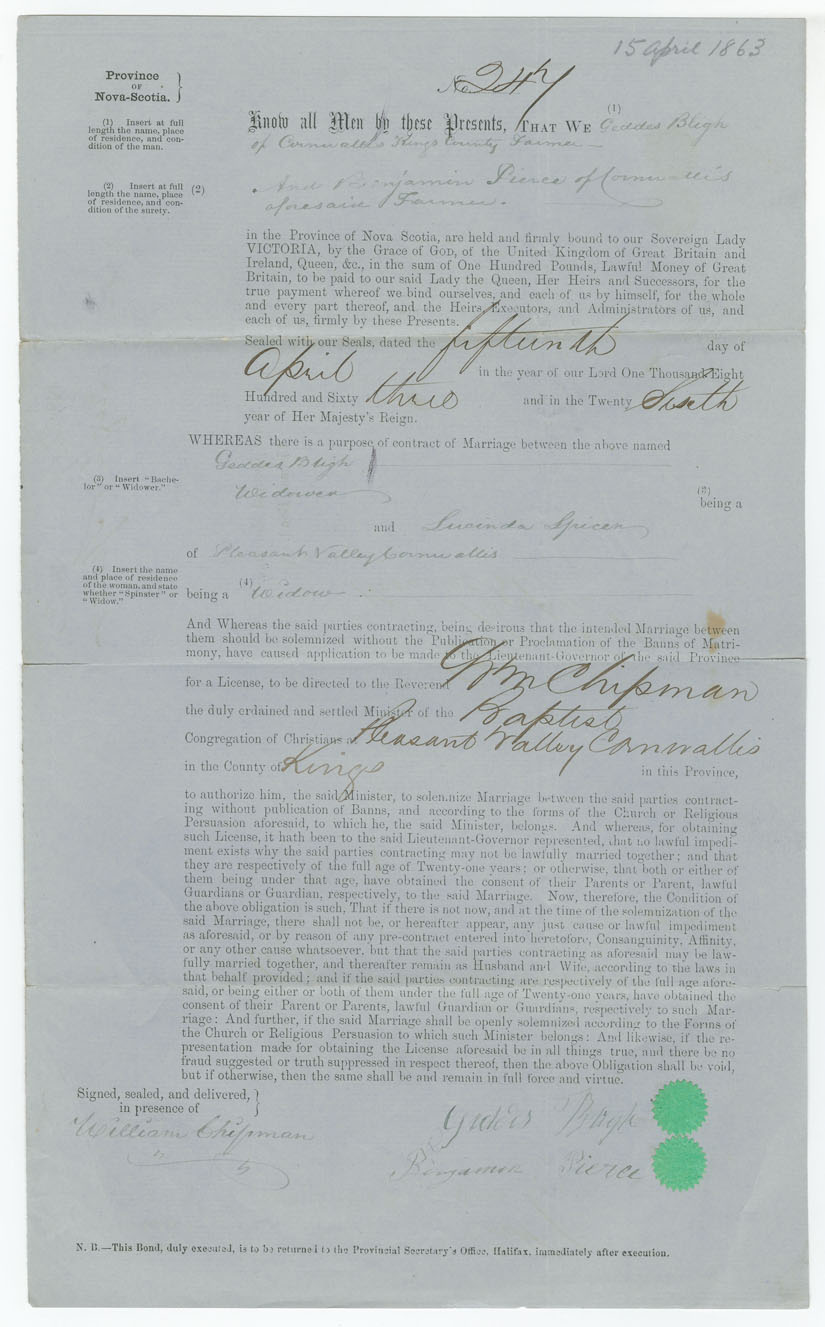 15 April 1863
Province
OF
Nova-Scotia.
No 247
(1) Insert at full
length the name, place
of residence, and con-
dition of the man.
(1)
Know all Men by these Presents, THAT WE Geddes Bligh
of Cornwallis Kings County Farmer
(2) Insert at full
length the name, place
of residence, and con-
dition of the surety.
(2) And Benjamin Pierce of Cornwallis
aforesaid Farmer.
in the Province of Nova Scotia, are held and firmly bound to our Sovereign Lady
VICTORIA, by the Grace of GOD, of the United Kingdom of Great Britain and
Ireland, Queen, &c., in the sum of One Hundred Pounds, Lawful Money of Great
Britain, to be paid to our said Lady the Queen, Her Heirs and Successors, for the
true payment whereof we bind ourselves, and each of us by himself, for the whole
and every part thereof, and the Heirs, Executors, and Administrators of us, and
each of us, firmly by these Presents.
Sealed with our Seals, dated the fifteenth day of
April in the year of our Lord One Thousand Eight
Hundred and Sixty three and in the Twenty Sixth
year of Her Majesty's Reign.
WHEREAS there is a purpose of contract of Marriage between the above named
Geddes Bligh
(3) Insert "Bache-
lor" or "Widower."
(3)
being a
Widower
and Lucinda Spicer
of Pleasant Valley Cornwallis
(4) Insert the name
and place of residence
of the woman, and state
whether "Spinster" or
"Widow."
being a (4) Widow
And Whereas the said parties contracting, being desirous that the intended Marriage between
them should be solemnized without the Publication or Proclamation of the Banns of Matri-
mony, have caused application to be made to the Lieutenant-Governor of the said Province
for a License, to be directed to the Reverend Wm Chipman
the duly ordained and settled Minister of the Baptist
Congregation of Christians at Pleasant Valley Cornwallis
in the County of Kings in this Province,
to authorize him, the said Minister, to solemnize Marriage between the said parties contract-
ing without publication of Banns, and according to the forms of the Church or Religious
Persuasion aforesaid, to which he, the said Minister, belongs. And whereas, for obtaining
such License, it hath been to the said Lieutenant-Governor represented, that no lawful impedi-
ment exists why the said parties contracting may not be lawfully married together; and that
they are respectively of the full age of Twenty-one years; or otherwise, that both or either of
them being under that age, have obtained the consent of their Parents or Parent, lawful
Guardians or Guardian, respectively, to the said Marriage. Now, therefore, the Condition of
the above obligation is such, That if there is not now, and at the time of the solemnization of the
said Marriage, there shall not be, or hereafter appear, any just cause or lawful impediment
as aforesaid, or by reason of any pre-contract entered into heretofore, Consanguinity, Affinity,
or any other cause whatsoever, but that the said parties contracting as aforesaid may be law-
fully married together, and thereafter remain as Husband and Wife, according to the laws in
that behalf provided; and if the said parties contracting are respectively of the full age afore-
said, or being either or both of them under the full age of Twenty-one years, have obtained the
consent of their Parent or Parents, lawful Guardian or Guardians, respectively to such Mar-
riage: And further, if the said Marriage shall be openly solemnized according to the Forms of
the Church or Religious Persuasion to which such Minister belongs: And likewise, if the re-
presentation made for obtaining the License aforesaid be in all things true, and there be no
fraud suggested or truth suppressed in respect thereof, then the above Obligation shall be void,
but if otherwise, then the same shall be and remain in full force and virtue.
Signed, sealed, and delivered,
in presence of
William Chipman
Geddes Bligh
Benjamin Pierce
N. B.—This Bond, duly executed, is to be returned to the Provincial Secretary's Office, Halifax, immediately after execution.